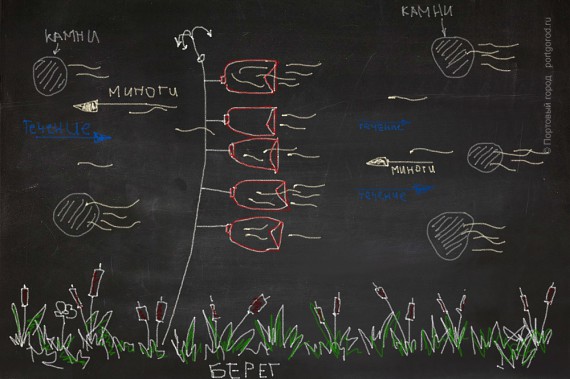 КАМНИ
КАМНИ
МИНОГИ
Течение
течение
МИНОГИ
течение
БЕРЕГ
© Портовый город portgorod.ru